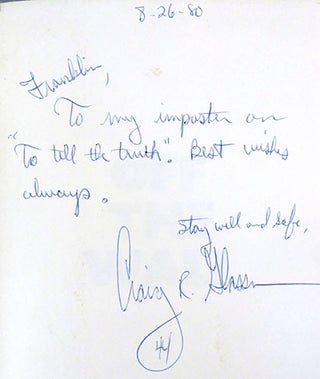 8-26-80
Franklin,
To my imposter on
"To tell the truth". Best wishes
always.
Stay well and safe,
Craig R. Glass
44